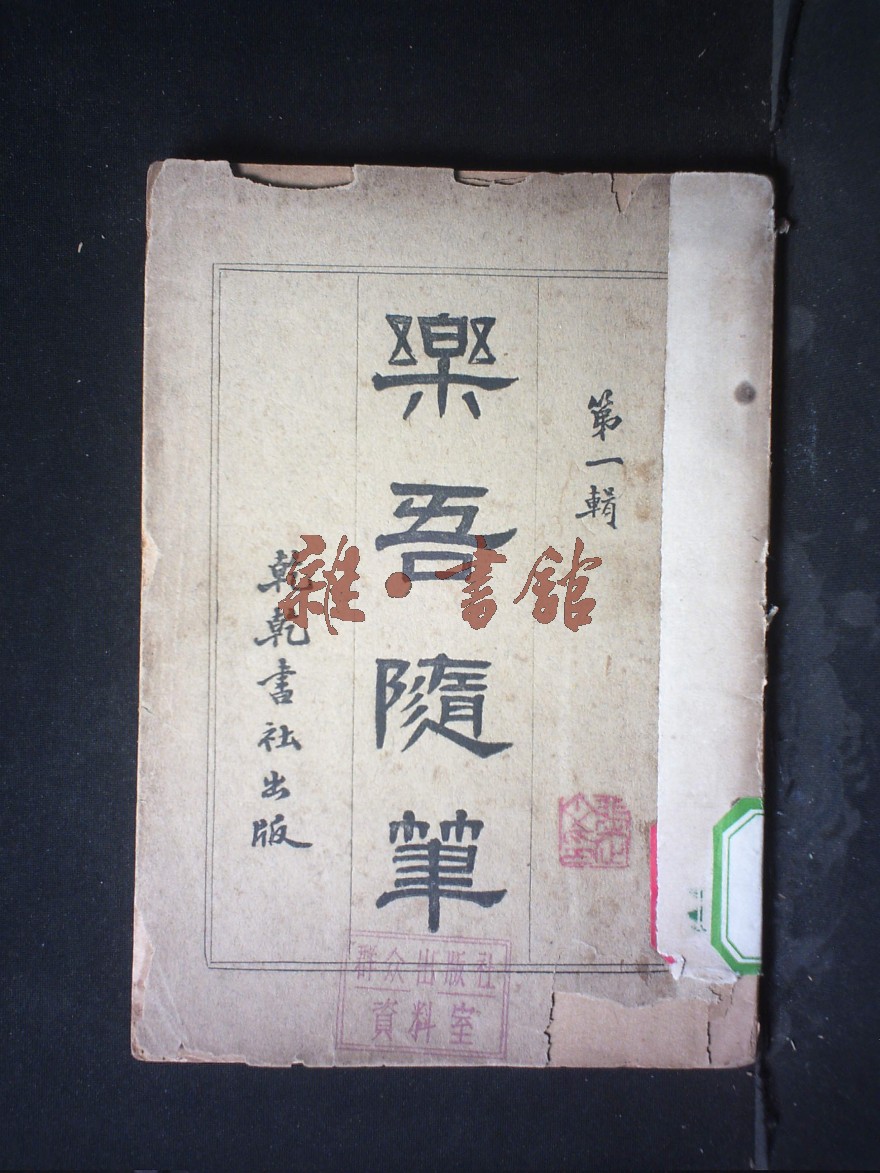 第一輯
樂吾隨筆
乾乾書社出版
雜·書舘
群众出版社
資料室